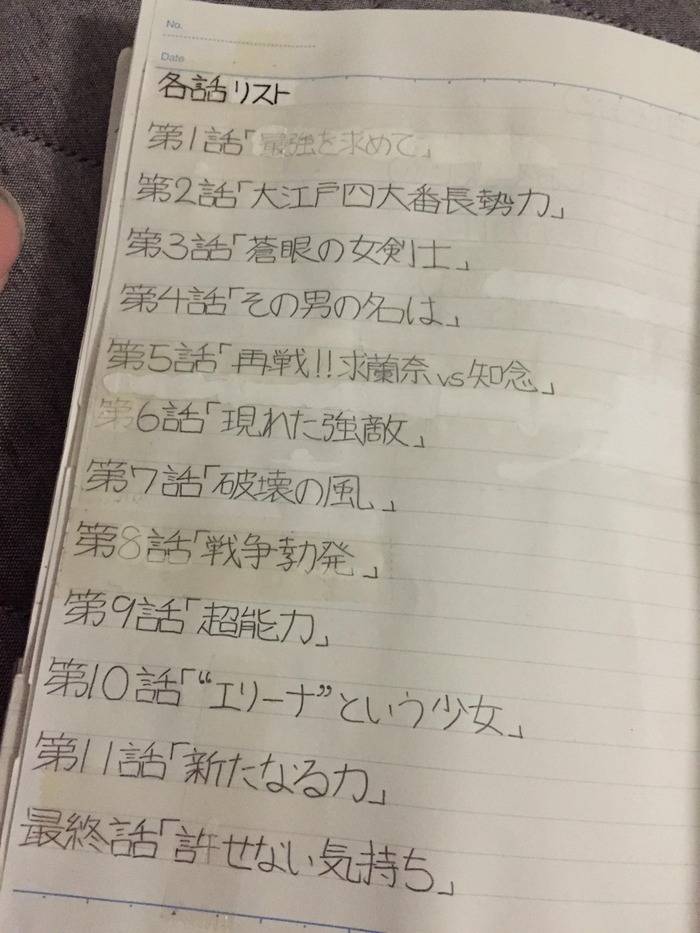 No.
Date
各話リスト
第1話「最強を求めて」
第2話「大江戸四大番長勢力」
第3話「蒼眼の女剣士」
第4話「その男の名は」
第5話「再戦!!求蘭奈vs知念」
第6話「現れた強敵」
第7話「破壊の風」
第8話「戦争勃発」
第9話「超能力」
第10話「“エリーナ”という少女」
第11話「新たなる力」
最終話「許せない気持ち」